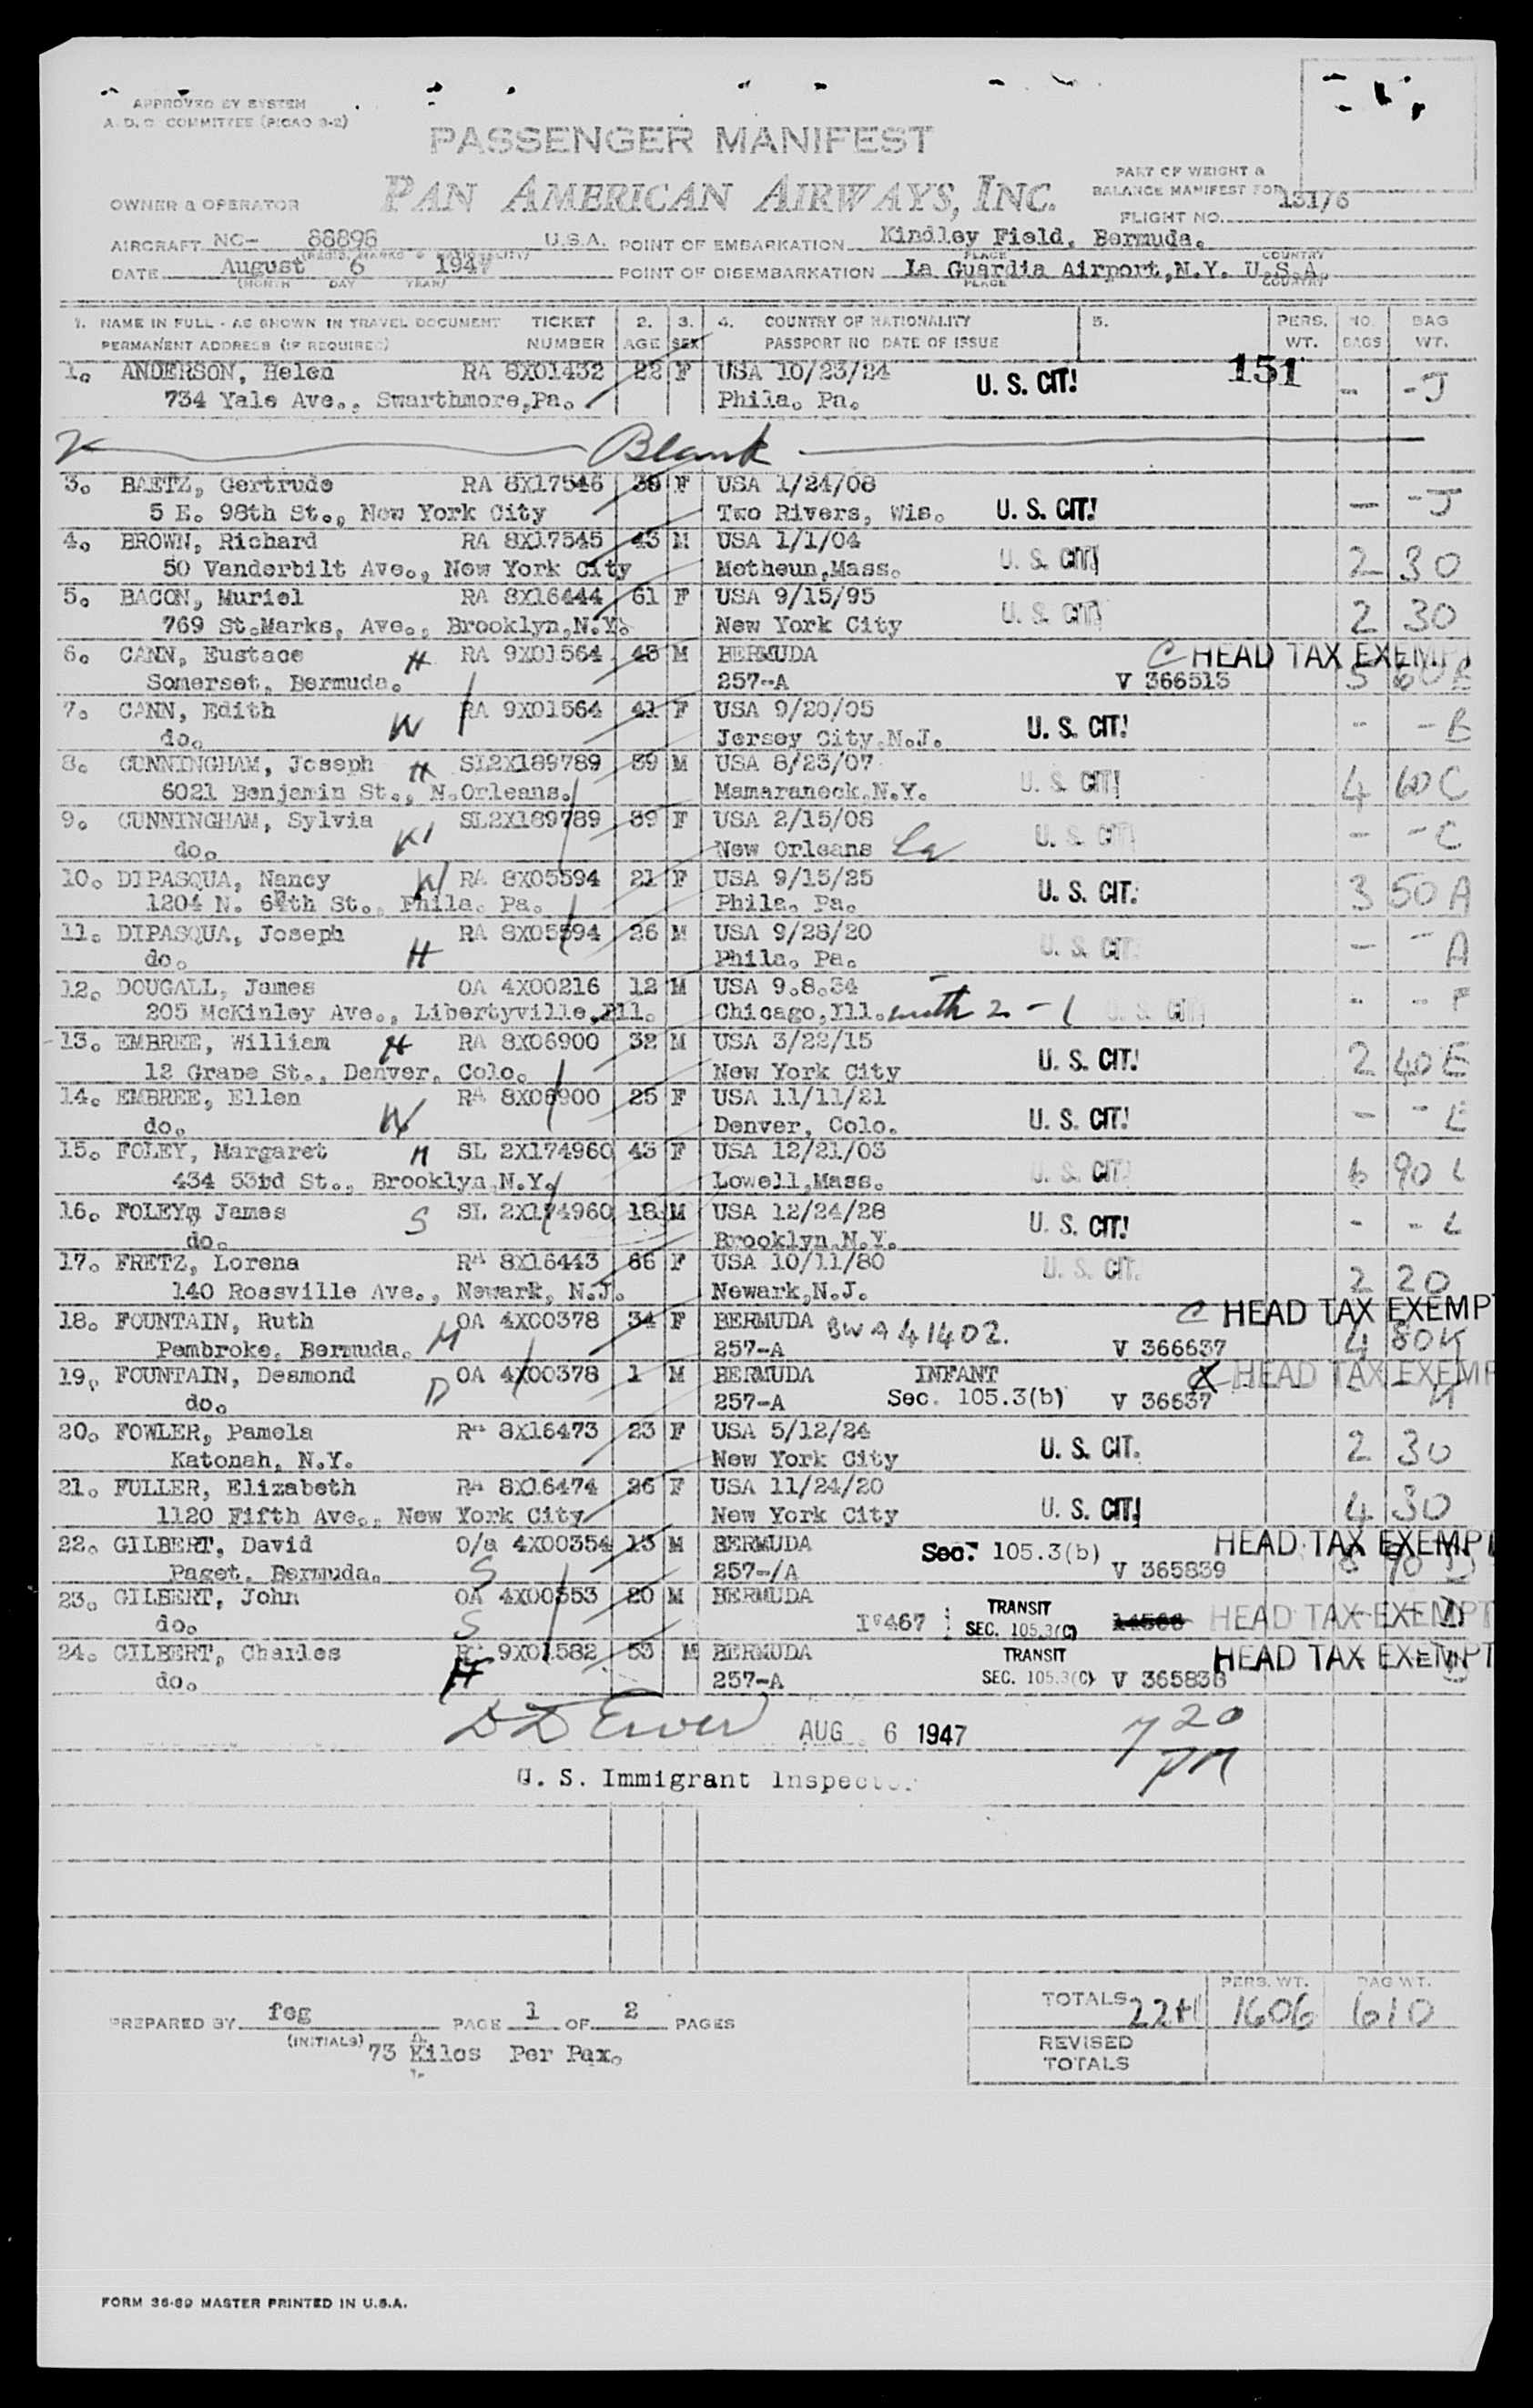 APPROVED BY SYSTEM
A.D.C. COMMITTEE (PICAO 3-2)
PASSENGER MANIFEST
PAN AMERICAN AIRWAYS, INC.
PART OF WEIGHT &
BALANCE MANIFEST FOR
FLIGHT NO. 131/6
OWNER & OPERATOR
AIRCRAFT NC- 88898 U.S.A. POINT OF EMBARKATION Kindley Field, Bermuda.
DATE August 6 1947 POINT OF DISEMBARKATION La Guardia Airport, N.Y. U.S.A.
(MONTH DAY YEAR) PLACE COUNTRY
1. NAME IN FULL - AS SHOWN IN TRAVEL DOCUMENT TICKET 2. 3. 4. COUNTRY OF NATIONALITY 5. PERS. NO. BAG
PERMANENT ADDRESS (IF REQUIRED) NUMBER AGE SEX PASSPORT NO DATE OF ISSUE WT. BAGS WT.
1. ANDERSON, Helen RA 8X01432 22 F USA 10/23/24 U. S. CIT! 151
734 Yale Ave., Swarthmore, Pa. Phila. Pa. - - J
2 Blank
3. BAETZ, Gertrude RA 8X17546 39 F USA 1/24/08
5 E. 98th St., New York City Two Rivers, Wis. U. S. CIT! - - J
4. BROWN, Richard RA 8X17545 43 M USA 1/1/04
50 Vanderbilt Ave., New York City Metheun, Mass. U. S. CIT! 2 30
5. BACON, Muriel RA 8X16444 61 F USA 9/15/95
769 St.Marks, Ave., Brooklyn, N.Y. New York City U. S. CIT! 2 30
6. CANN, Eustace H RA 9X01564 45 M BERMUDA C HEAD TAX EXEMPT
Somerset, Bermuda. 257-A V 366513 5 60 B
7. CANN, Edith W RA 9X01564 41 F USA 9/20/05 U. S. CIT!
do. Jersey City, N.J. - - B
8. CUNNINGHAM, Joseph H SL2X189789 39 M USA 8/23/07
6021 Benjamin St., N.Orleans. Mamaraneck, N.Y. U. S. CIT! 4 60 C
9. CUNNINGHAM, Sylvia W SL2X189789 39 F USA 2/15/08
do. New Orleans La U. S. CIT! - - C
10. DIPASQUA, Nancy W RA 8X05594 21 F USA 9/15/25
1204 N. 64th St., Phila. Pa. Phila. Pa. U. S. CIT. 3 50 A
11. DIPASQUA, Joseph H RA 8X05594 26 M USA 9/28/20
do. Phila. Pa. U. S. CIT. - - A
12. DOUGALL, James OA 4X00216 12 M USA 9.8.34
205 McKinley Ave., Libertyville, Ill. Chicago, Ill. with 2 - 1 U. S. CIT! - - F
13. EMBREE, William H RA 8X06900 32 M USA 3/22/15
12 Grape St., Denver, Colo. New York City U. S. CIT! 2 40 E
14. EMBREE, Ellen W RA 8X06900 25 F USA 11/11/21
do. Denver, Colo. U. S. CIT! - - E
15. FOLEY, Margaret M SL 2X174960 43 F USA 12/21/03
434 53rd St., Brooklyn, N.Y. Lowell, Mass. U. S. CIT! 6 90 L
16. FOLEY, James S SL 2X174960 18 M USA 12/24/28
do. Brooklyn, N.Y. U. S. CIT! - - L
17. FRETZ, Lorena RA 8X16443 66 F USA 10/11/80
140 Rossville Ave., Newark, N.J. Newark, N.J. U. S. CIT. 2 20
18. FOUNTAIN, Ruth M OA 4X00378 34 F BERMUDA BWA 41402. C HEAD TAX EXEMPT
Pembroke, Bermuda. 257-A V 366637 4 80 K
19. FOUNTAIN, Desmond D OA 4X00378 1 M BERMUDA INFANT HEAD TAX EXEMPT
do. 257-A Sec. 105.3(b) V 36637 - - K
20. FOWLER, Pamela RA 8X16473 23 F USA 5/12/24
Katonah, N.Y. New York City U. S. CIT. 2 30
21. FULLER, Elizabeth RA 8X16474 26 F USA 11/24/20
1120 Fifth Ave., New York City New York City U. S. CIT! 4 30
22. GILBERT, David S O/a 4X00354 15 M BERMUDA Sec. 105.3(b) HEAD TAX EXEMPT
Paget, Bermuda. 257-/A V 365839 90 D
23. GILBERT, John S OA 4X00353 20 M BERMUDA TRANSIT HEAD TAX EXEMPT
do. 467 SEC. 105.3(C) - - D
24. GILBERT, Charles H 9X01582 53 M BERMUDA TRANSIT HEAD TAX EXEMPT
do. 257-A SEC. 105.3(C) V 365838 - - D
AUG 6 1947 7 20
pm
U. S. Immigrant Inspector
PERS. WT. BAG WT.
TOTALS 22+1 1606 610
REVISED
TOTALS
PREPARED BY feg PAGE 1 OF 2 PAGES
(INITIALS) 73 Kilos Per Pax.
FORM 36-89 MASTER PRINTED IN U.S.A.